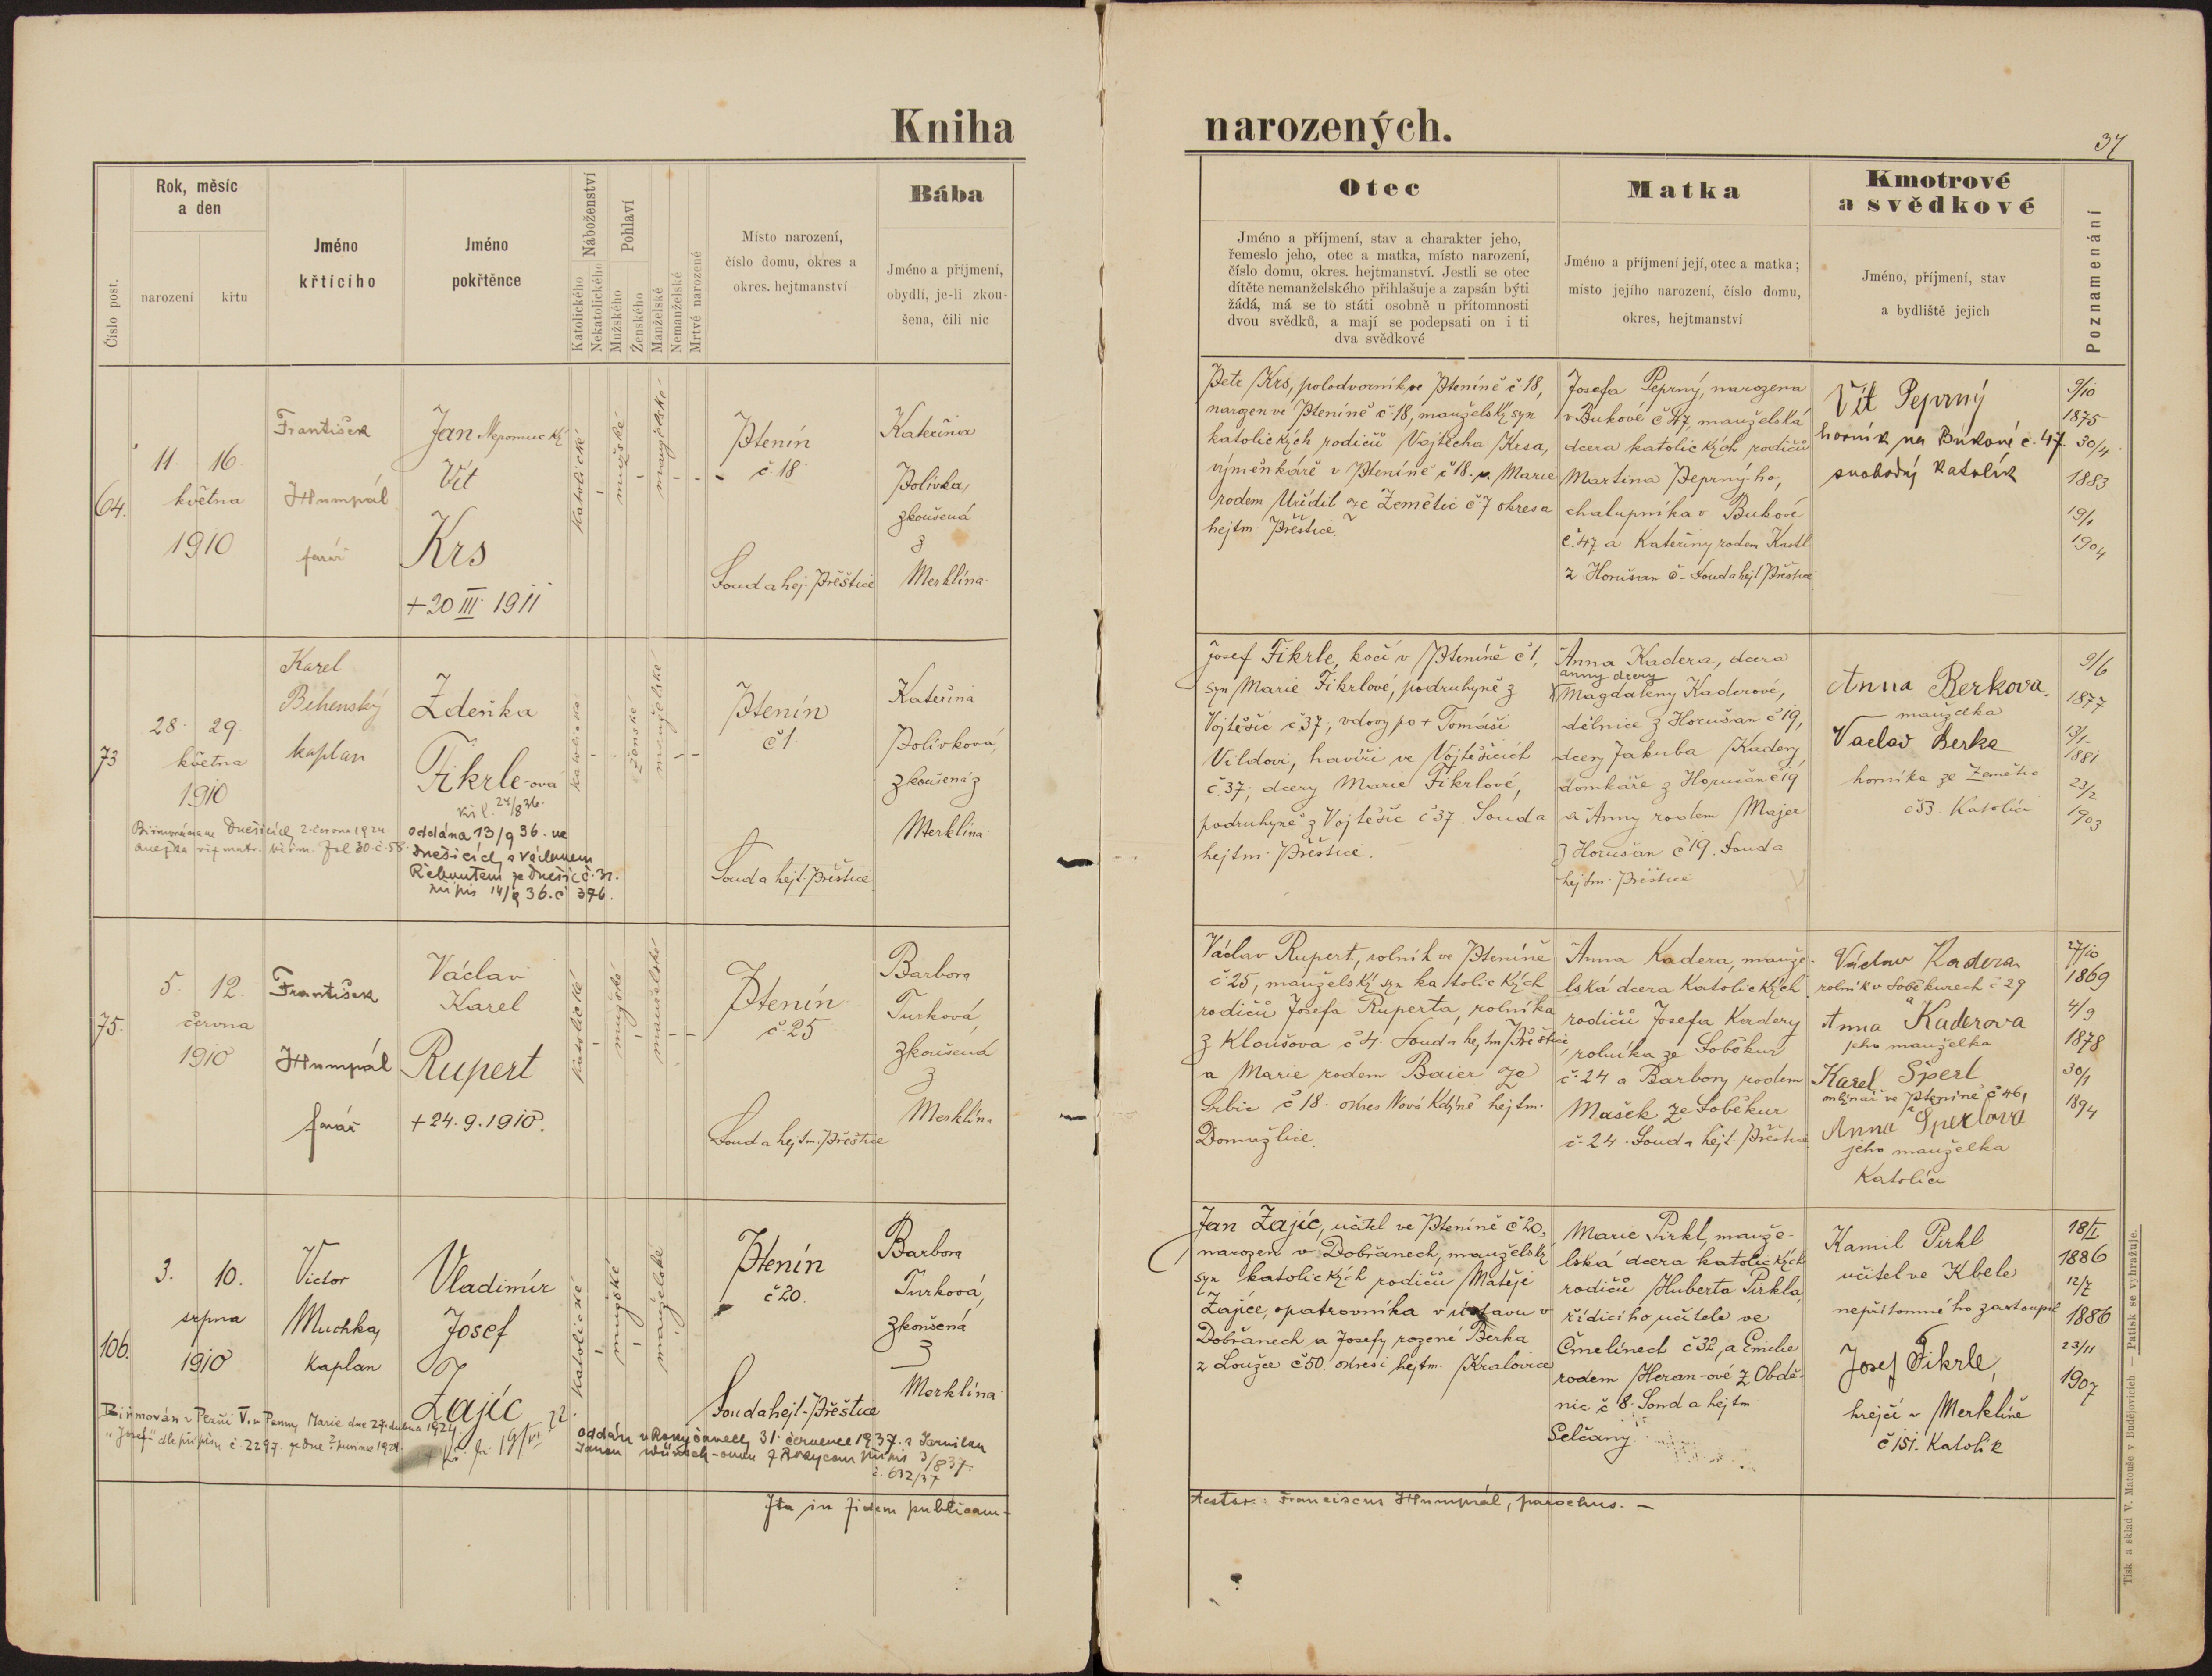 Kniha
narozených.
37
Číslo post.
Rok, měsíc
a den
narození
křtu
Jméno
křtícího
Jméno
pokřtěnce
Náboženství
Katolického
Nekatolického
Pohlaví
Mužského
Ženského
Manželské
Nemanželské
Mrtvé narozené
Místo narození,
číslo domu, okres a
okres. hejtmanství
Bába
Jméno a příjmení,
obydlí, je-li zkou-
šena, čili nic
Otec
Jméno a příjmení, stav a charakter jeho,
řemeslo jeho, otec a matka, místo narození,
číslo domu, okres. hejtmanství. Jestli se otec
dítěte nemanželského přihlašuje a zapsán býti
žádá, má se to státi osobně u přítomnosti
dvou svědků, a mají se podepsati on i ti
dva svědkové
Matka
Jméno a příjmení její, otec a matka;
místo jejího narození, číslo domu,
okres, hejtmanství
Kmotrové
a svědkové
Jméno, příjmení, stav
a bydliště jejich
Poznamenání
64.
11. 16.
května
1910
František
Humpál
farář
Jan Nepomucký
Vít
Krs
+20 III. 1911
katolické
mužské
manželské
Ptenín
č. 18
Soud a hej. Přeštice
Kateřina
Polívka,
zkoušená
z
Merklína
Petr Krs, polodvorník ve Pteníně č 18,
narozen ve Pteníně č. 18, manželský syn
katolických rodičů Vojtěcha Krsa,
výměnkáře v Pteníně č 18. a Marie
rodem Uřídil ze Zemětic č 7 okres a
hejtm. Přeštice.
Josefa Peprný, narozena
v Bukové č 47, manželská
dcera katolických rodičů
Martina Peprného,
chalupníka v Bukové
č. 47 a Kateřiny rodem Kastl
z Horušan č - Soud a hejt Přeštice
Vít Peprný
horník na Bukové č. 47.
svobodný katolík
9/10
1875
30/4
1883
19/1
1904
73
28. 29.
května
1910
Karel
Běhenský
kaplan
Zdeňka
Fikrle-ová
oddána 13/9 36. ve
Dnešicích s Václavem
ze Dnešic č. 31.
14/9 36. č 376.
Dnešicích 2. června 1924.
katolické
ženské
manželské
Ptenín
č 1.
Soud a hejt. Přeštice
Kateřina
Polívková,
zkoušená z
Merklína
Josef Fikrle, kočí v Pteníně č 1,
syn Marie Fikrlové, podruhyně z
Vojtěšic č 37, vdovy po + Tomáši
Vildovi, havíři ve Vojtěšicích
č. 37; dcery Marie Fikrlové,
podruhyně z Vojtěšic č 37. Soud a
hejtm. Přeštice.
Anna Kadera, dcera
Anny dcery
Magdaleny Kaderové,
dělnice z Horušan č 19,
dcery Jakuba Kadery
domkáře z Horušan č 19
a Anny rodem Majer
z Horušan č 19. Soud a
hejtm. Přeštice
Anna Berkova.
manželka
Vaclav Berka
horníka ze Zemětic
č 53. Katolíci
9/6
1877
13/1
1881
23/2
1903
75.
5. 12.
června
1910
František
Humpál
farář
Václav
Karel
Rupert
+24. 9. 1910.
katolické
mužské
manželské
Ptenín
č 25
Soud a hejtm. Přeštice
Barbora
Turková
zkoušená
z
Merklína
Václav Rupert, rolník ve Pteníně
č. 25, manželský syn katolických
rodičů Josefa Ruperta, rolníka
z Kloušova č 4. Soud a hejtm Přeštice,
a Marie rodem Baier ze
Srbic č 18. okres Nová Kdyně hejtm.
Domažlice.
Anna Kadera, manže-
lská dcera Katolických
rodičů Josefa Kadery
rolníka ze Soběkur
č. 24 a Barbory rodem
Mašek ze Soběkur
č. 24. Soud a hejt. Přeštice
Václav Kadera
rolník v Soběkurech č 29
a
Anna Kaderova
jeho manželka
Karel Šperl
mlynář ve Pteníně č 46,
a
Anna Šperlova
jeho manželka
Katolíci
27/10
1869
4/9
1878
30/1
1894
106.
3. 10.
srpna
1910
Victor
Muchka,
Kaplan
Vladimír
Josef
Zajíc
Biřmován v Plzni Marie dne 27. dubna 1924.
"Josef" č 2297.
oddán v Rokycanech 31. července 1937. s Jarmilou
Janou Wünsch-ovou z Rokycan 3/8 37.
č. 632/37
katolické
mužské
manželské
Ptenín
č 20.
Soud a hejt. Přeštice
Barbora
Turková,
zkoušená
z
Merklína
Jan Zajíc, učitel ve Pteníně č 20,
narozen v Dobřanech, manželský
syn katolických rodičů Matěje
Zajíce, opatrovníka v ústavu v
Dobřanech a Josefy rozené Berka
z Loužce č 50. okres i hejtm. Kralovice
Marie Pirkl, manže-
lská dcera katolických
rodičů Huberta Pirkla,
řídicího učitele ve
Čmelínech č 32, a Emilie
rodem Heran-ové z Obdě-
nic č 8. Soud a hejtm
Selčany.
Kamil Pirkl
učitel ve Kbele
nepřítomného zastoupil
Josef Fikrle,
hrejčí v Merklíně
č 151. Katolík
18/II
1886
12/7
1886
23/11
1907
Ita in fidem publicam -
testor: Franciscus Humpál, parochus. -
Tisk a sklad V. Matouše v Budějovicích. — Patisk se vyhražuje.